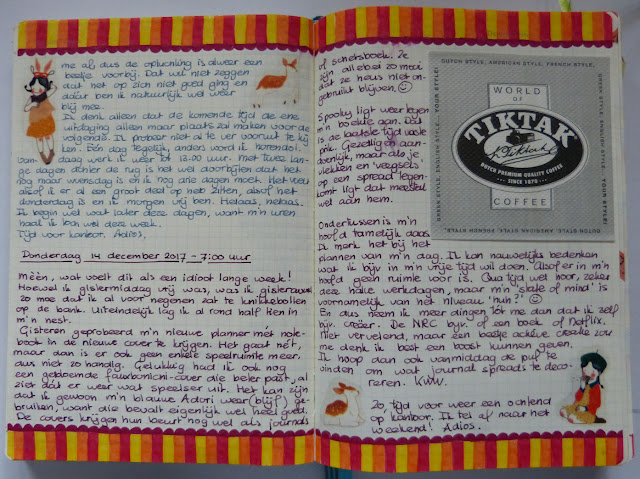 me al, dus de opluchting is alweer een
beetje voorbij. Dat wil niet zeggen
dat het op zich niet goed ging en
daar ben ik natuurlijk wel weer
blij mee.
Ik denk alleen dat de komende tijd de ene
uitdaging alleen maar plaats zal maken voor de
volgende. Ik probeer niet al te ver vooruit te kij
ken. Één dag tegelijk, anders word ik horendol.
Van-
daag werk ik weer tot 13.00 uur. Met twee lan-
ge dagen achter de rug is het wel doorbijten dat het
nog maar woensdag is en ik nog drie dagen moet. Het voelt
alsof ik er al een groot deel op heb zitten, alsof het
donderdag is en ik morgen vrij ben. Helaas, helaas.
Ik begin wel wat later deze dagen, want m'n uren
haal ik toch wel deze week.
Tijd voor kantoor. Adios,
Donderdag 14 december 2017 - 7:00 uur
Mèèn, wat voelt dit als een idioot lange week!
Hoewel ik gistermiddag vrij was, was ik gisteravond
zo moe dat ik al voor negenen zat te knikkebollen
op de bank. Uiteindelijk lag ik al rond half tien in
m'n nest.
Gisteren geprobeerd m'n nieuwe planner mét note-
book in de nieuwe cover te krijgen. Het gaat nét,
maar dan is er ook geen enkele speelruimte meer,
dus niet zo handig. Gelukkig had ik ook nog
een gebloemde cover die beter past, al
ziet dat er weer wat speelser uit. Het kan zijn
dat ik gewoon m'n blauwe Adori weer (blijf) ge-
bruiken, want die bevalt eigenlijk wel heel goed.
De covers krijgen hun beurt nog wel als journals
of schetsboek. Ze
zijn allebei zo mooi
dat ze heus niet on-
gebruikt blijven. ☺
Spooky ligt weer tegen
m'n boekje aan. Dat
is de laatste tijd vaste
prik. Gezellig en aan-
doenlijk, maar als je
vlekken en veegsels
op een spread tegen-
komt ligt dat meestal
wel aan hem.
Ondertussen is m'n
hoofd tamelijk daas.
Ik merk het bij het
plannen van m'n dag. Ik kan nauwelijks bedenken
wat ik bijv. in m'n vrije tijd wil doen. Alsof er in m'n
hoofd geen ruimte voor is. Qua tijd wel hoor, zeker
deze halve werkdagen, maar m'n 'state of mind' is
voornamelijk van het niveau 'huh?' ☺
En dus neem ik meer dingen tot me dan dat ik zelf
bijv. creëer. De NRC bijv. of een boek of Netflix.
Niet vervelend, maar een beetje actieve creatie zou
me denk ik best een boost kunnen geven.
Ik hoop dan ook vanmiddag de puf te
vinden om wat journal spreads te deco-
reren. Kww.
Zo, tijd voor weer een ochtend
op kantoor. Ik tel af naar het
weekend! Adios.
DUTCH STYLE, AMERICAN STYLE, FRENCH STYLE,
GREEK STYLE, ENGLISH STYLE, YOUR STYLE!
WORLD
OF
TIKTAK
DUTCH PREMIUM QUALITY COFFEE
... SINCE 1870 ...
COFFEE